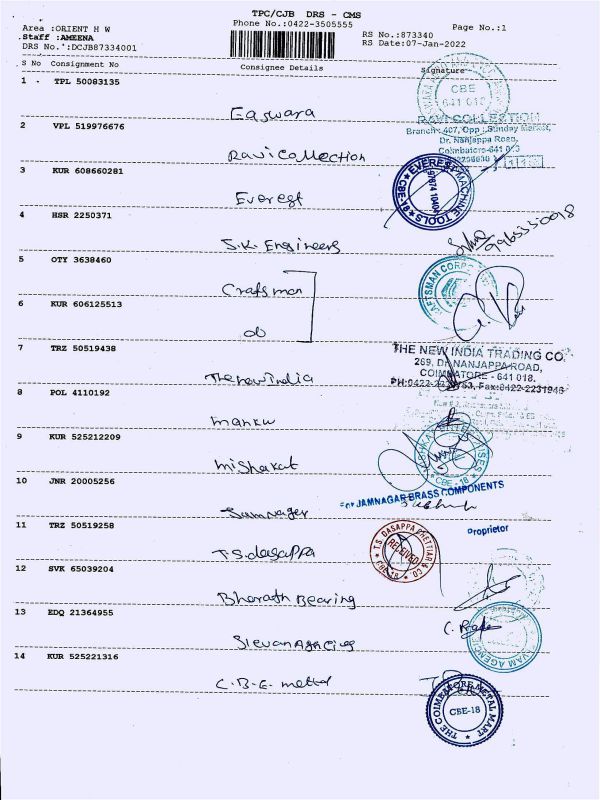 TPC/CJB DRS - CMS
Phone No.:0422-3505555
Page No.:1
Area :ORIENT H W
Staff :AMEENA
DRS No.:DCJB87334001
RS No.:873340
RS Date:07-Jan-2022
S No Consignment No Consignee Details Signature
1 TPL 50083135
Easwara
CBE
641 018
2 VPL 519976676
Ravi collection
RAVI COLLECTION
Branch: 407, Opp: Sunday Market,
Dr. Nanjappa Road,
Coimbatore-641 018
3 KUR 608660281
Everest
EVEREST MACHINE TOOLS
CBE-18
4 HSR 2250371
S.K. Engineers
5 OTY 3638460
Craftsman
6 KUR 606125513
do
7 TRZ 50519438
The new india
THE NEW INDIA TRADING CO.
269, Dr. NANJAPPA ROAD,
COIMBATORE - 641 018.
Fax:0422-2231946
8 POL 4110192
manku
9 KUR 525212209
mishakat
CBE - 18
10 JNR 20005256
Jamnager
For JAMNAGAR BRASS COMPONENTS
Proprietor
11 TRZ 50519258
T.S. dasappa
T.S. DASAPPA CHETTIAR & CO.
RECEIVED
12 SVK 65039204
Bharath Bearing
13 EDQ 21364955
Sievan Agencies
14 KUR 525221316
C.B.E. mettal
THE COIMBATORE METAL MART
CBE-18